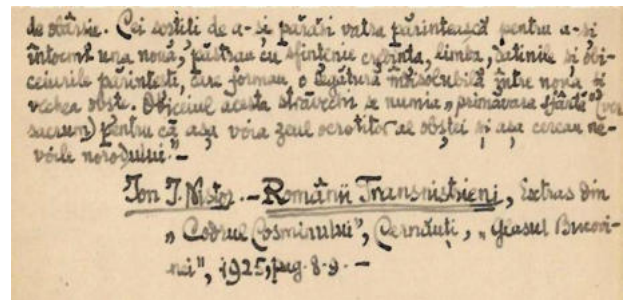 de obârsie. Cei sortiti de a-si părăsi vatra părintească pentru a-și
întocmi una nouă, păstrau cu sfintenie credinta, limba, datinile și obi-
ceiurile părintesti, care formau o legătură indisolubilă între noua si
vechea obste. Obiceiul acesta străvechi se numia „primăvara sfântă" (ver
sacrum) pentru că așa voia zeul ocrotitor al obștei și așa cereau ne-
voile norodului." —
Ion I. Nistor. — Românii Transnistrieni, Extras din
„Codrul Cosminului", Cernăuți, „Glasul Bucovi-
nei", 1925, pag. 8-9. —